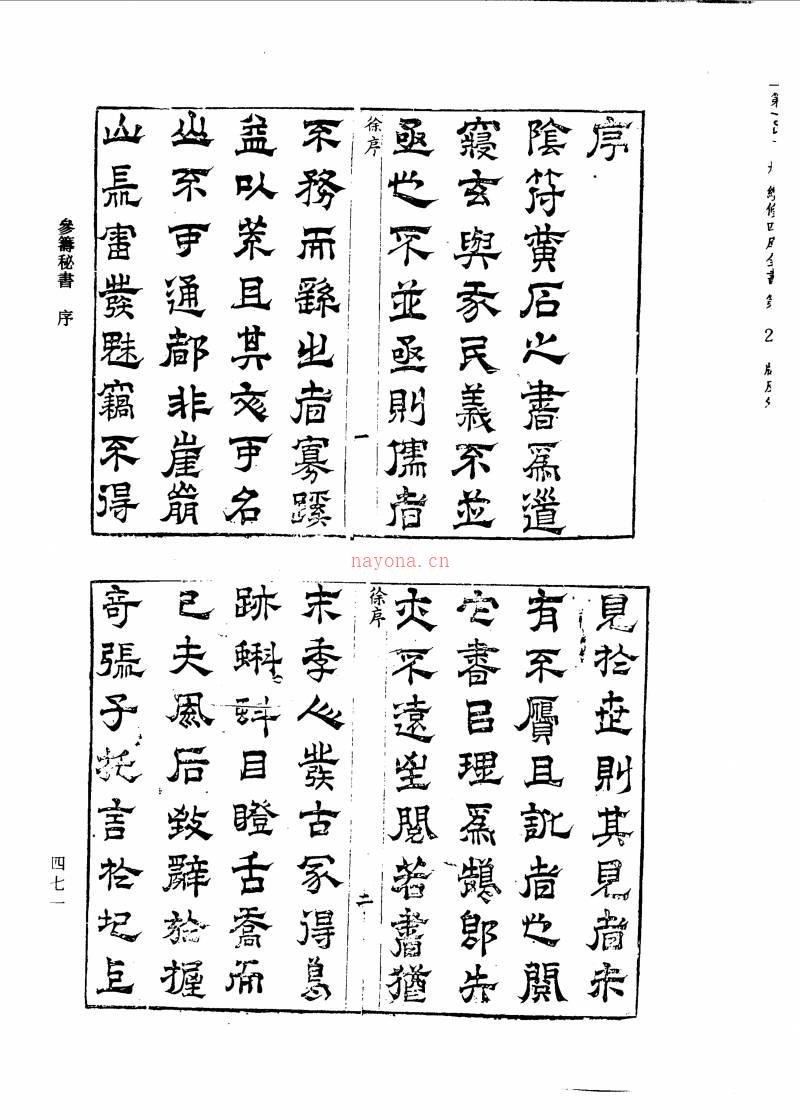 序
陰符黃石之書爲道
玄與民義不並
亟也不並亟則儒者
徐序
一
不務而繇出者寡蹊
益以荒且其文可名
山不可通都非崖崩
山長雷發魅竊不得
見於世則其見者未
有不贗且訛者也閱
它書以理爲鵠卽失
亦不遠至閱若書猶
徐序
二
末季人發古冢得鳥
跡蝌蚪目瞪舌喬而
已夫風后致辭於握
奇張子托言於圯上
參籌秘書 序
四七一
nayona.cn